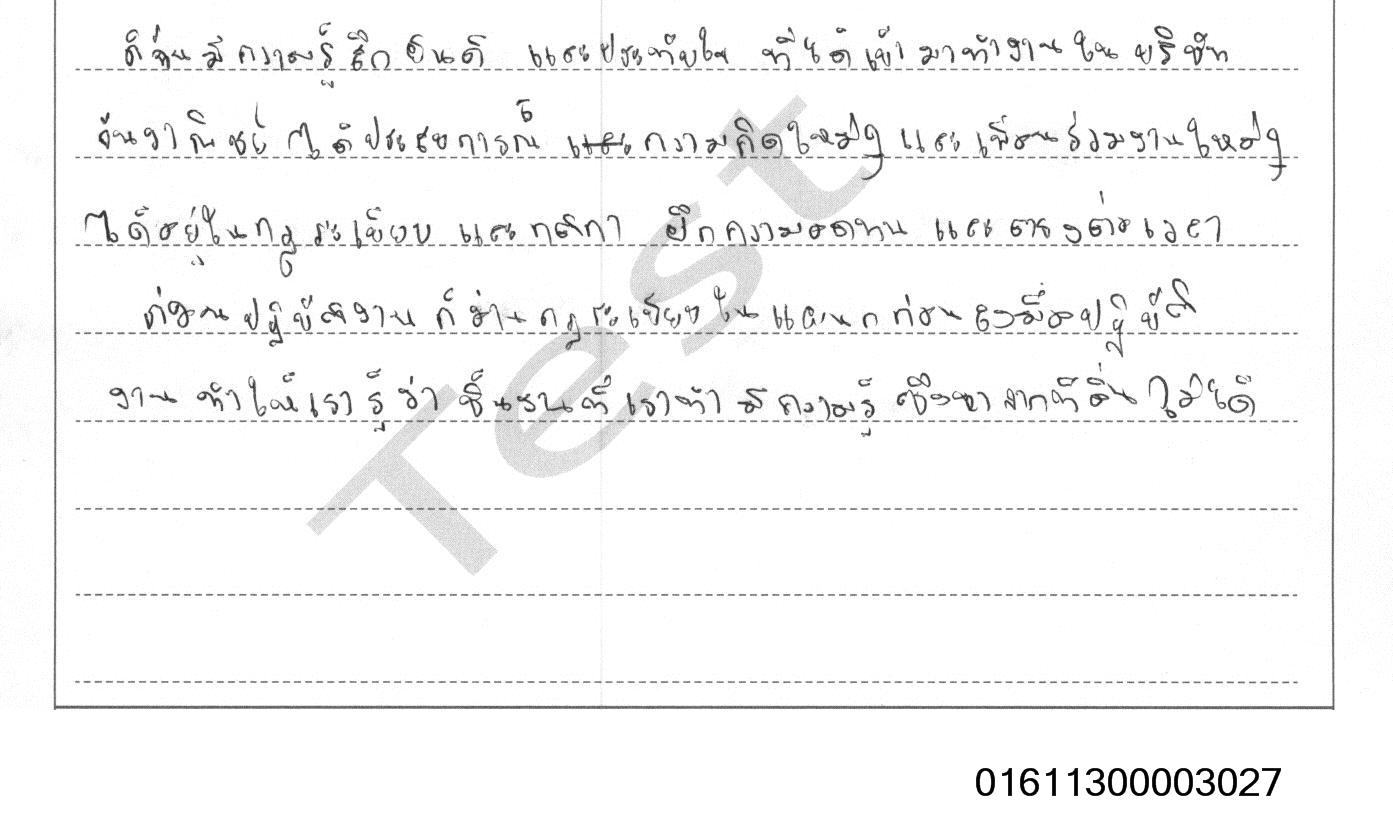 ดิฉันมีความรู้สึกยินดี และประทับใจ ที่ได้เข้ามาทำงานใน บริษัท
ได้ประสบการณ์ และความคิดใหม่ๆ และเพื่อนร่วมงานใหม่ๆ
ได้อยู่ในกฎระเบียบ และกติกา ฝึกความอดทน และตรงต่อเวลา
ก่อนปฏิบัติงาน ก็อ่านกฎระเบียบในแผนกก่อนลงมือปฏิบัติ
งาน ทำให้เรารู้ว่า ชิ้นงานที่เราทำ มีความรู้ ซึ่งหาจากที่อื่นไม่ได้
Test
01611300003027